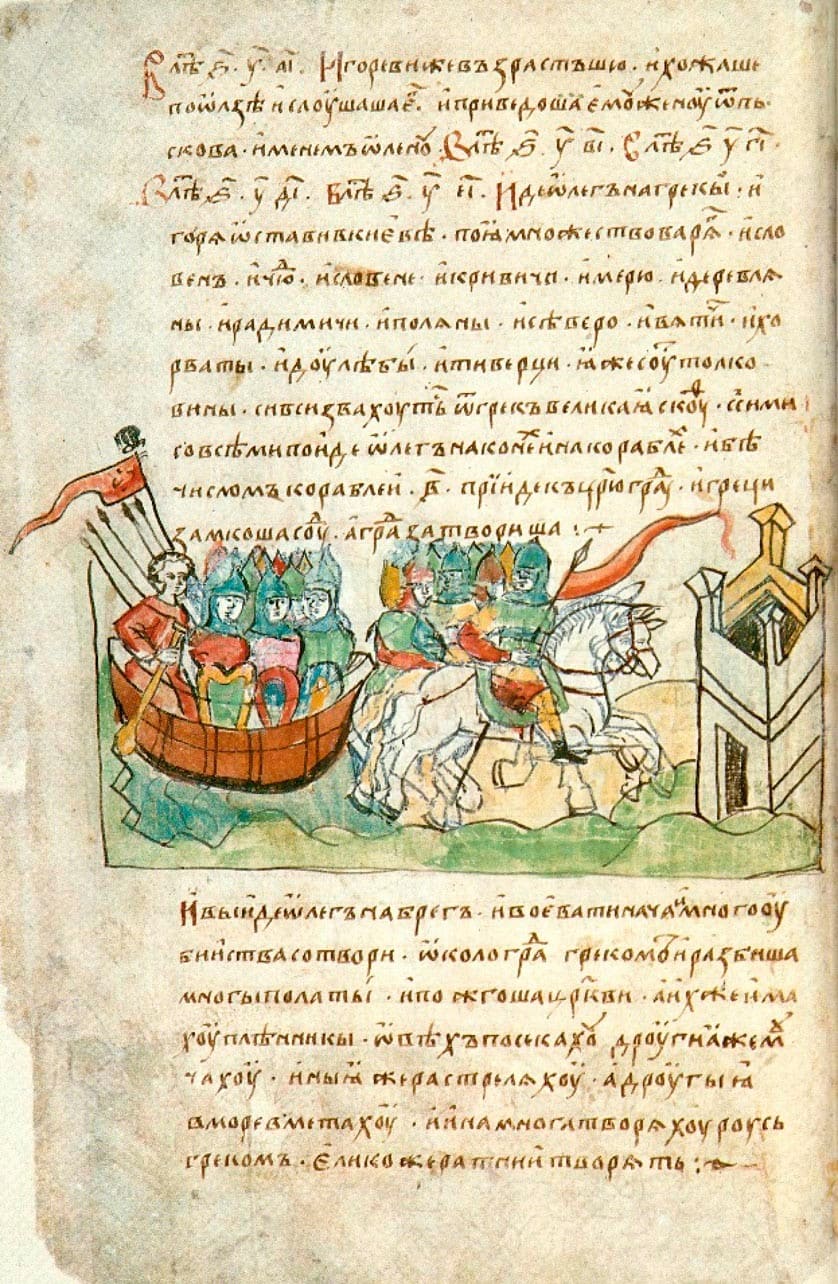 В лѣ҃т ҂ѕ҃. у҃. а҃і. Игореви же възрастъшю. и хожаше
по ѡлзѣ и слоушаша е҃г. и приведоша емоу женоу ѿ пь
скова. именемъ ѡленоу В лѣ҃т ҂ѕ҃. у҃ в҃і. В лѣ҃т ҂ѕ҃ у҃ г҃і.
В лѣ҃т ҂ѕ҃. у҃ д҃і. В лѣ҃т ҂ѕ҃. у҃ е҃і. Иде ѡлегъ на грекы. и
горя ѡставив киевѣ. поꙗ множество варяг. и сло
венъ. и чюд. и словене. и кривичи. и мерю. и деревля
ны. и радимичи. и поляны. и сѣверо. и вятичи. и хо
рваты. и доулѣбы. и тиверци. ꙗже соуть толко
вины. си вси звахоуть ѿ грекъ великаꙗ скоуф. с сими
со всѣми поиде ѡлегъ на конех и на кораблех. и бѣ
числомъ кораблеи. в҃. прїиде къ црюградоу. и греци
замкоша соуд. а град затвориша :~
И выиде ѡлегъ на брегъ. и воевати нача. и много оу
биства сотвори. ѡколо града грекомъ. и разбиша
многы полаты. и пожгоша цркви. а их же има
хоу плѣнникы. ѡвѣхъ посекахоу дроугиꙗ же моу
чахоу. иныꙗ же растреляхоу. а дроугыꙗ
в море вметахоу. и ина многа творяхоу роусь
грекомъ. елико же ратнии творять :~